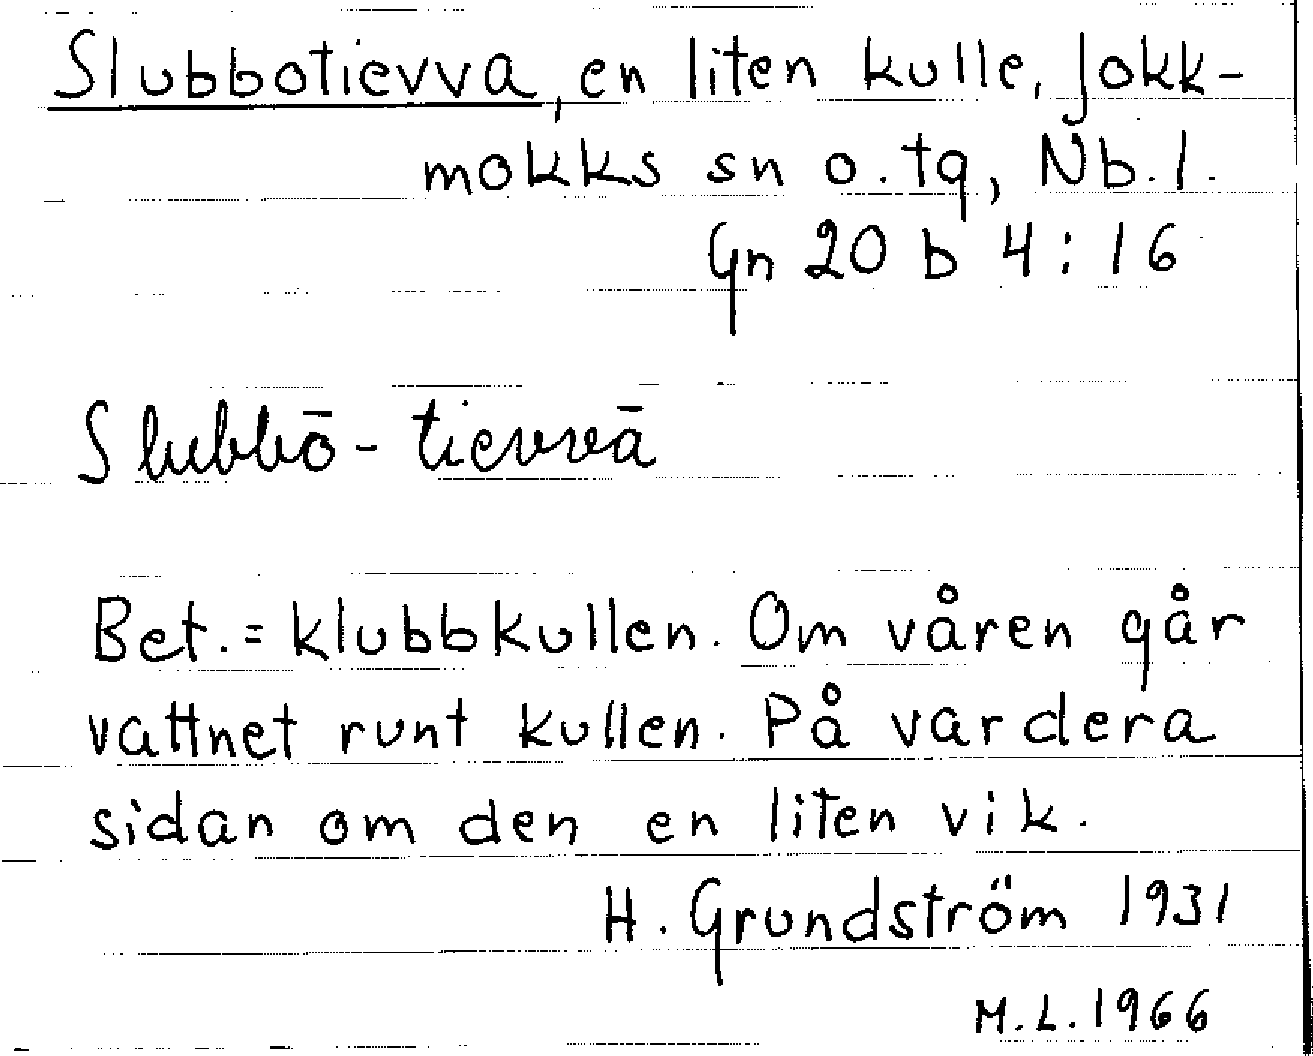 Slubbotievva, en liten kulle, Jokk-
mokks sn o. tg, Nb. l.
Gn 20 b 4:16
Slubbō - tievvā
Bet. = klubbkullen. Om våren går
vattnet runt kullen. På vardera
sidan om den en liten vik.
H. Grundström 1931
M. L. 1966